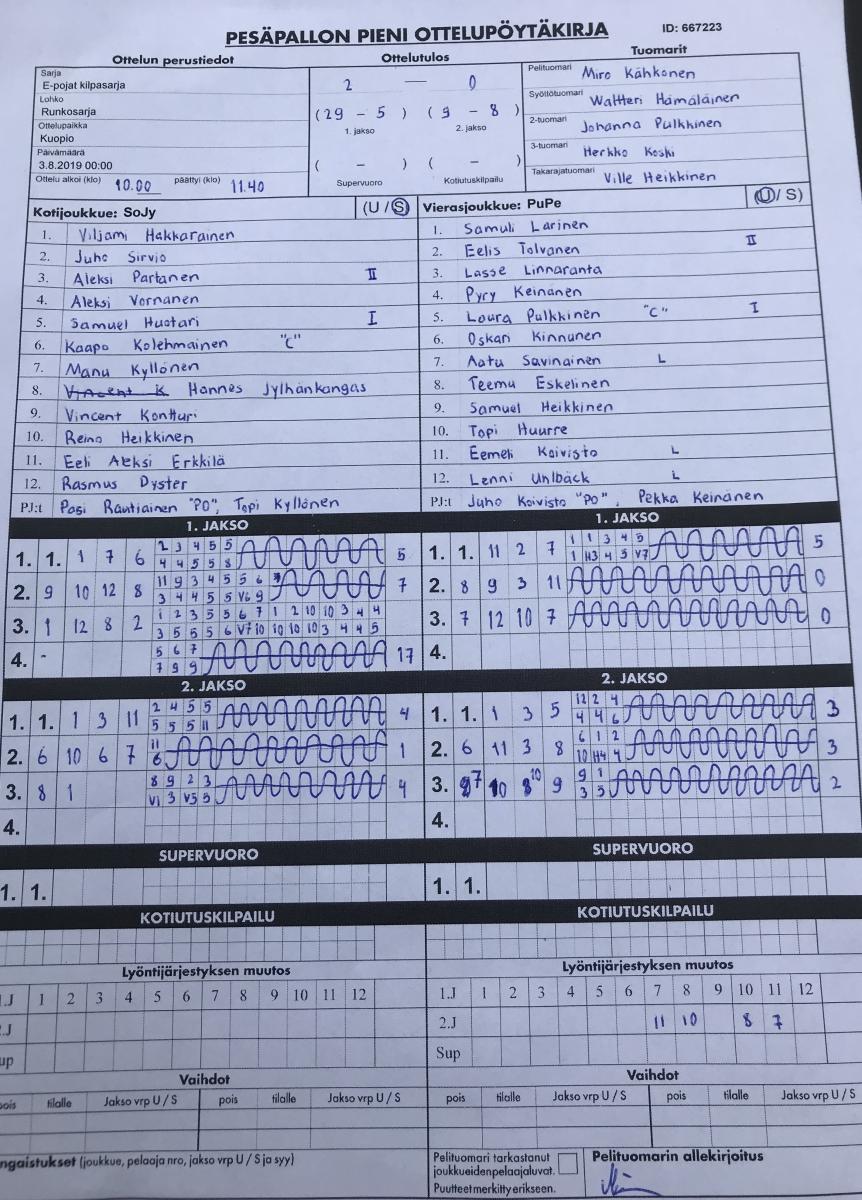 PESÄPALLON PIENI OTTELUPÖYTÄKIRJA ID: 667223
Ottelun perustiedot Ottelutulos Tuomarit
Sarja
E-pojat kilpasarja
Lohko
Runkosarja
Ottelupaikka
Kuopio
Päivämäärä
3.8.2019 00:00
Ottelu alkoi (klo) 10.00 päättyi (klo) 11.40
2 — 0
(29 - 5) (9 - 8)
1. jakso 2. jakso
( - ) ( - )
Supervuoro Kotiutuskilpailu
Pelituomari Miro Kähkönen
Syöttötuomari Waltteri Hämäläinen
2-tuomari Johanna Pulkkinen
3-tuomari Herkko Koski
Takarajatuomari Ville Heikkinen
Kotijoukkue: SoJy (U / S)
1. Viljami Hakkarainen
2. Juho Sirviö
3. Aleksi Partanen II
4. Aleksi Vornanen
5. Samuel Huotari I
6. Kaapo Kolehmainen "C"
7. Manu Kyllönen
8. Vincent K Hannes Jylhänkangas
9. Vincent Kontturi
10. Reino Heikkinen
11. Eeli Aleksi Erkkilä
12. Rasmus Dyster
PJ:t Pasi Rautiainen "PO", Topi Kyllönen
Vierasjoukkue: PuPe (U / S)
1. Samuli Larinen
2. Eelis Tolvanen II
3. Lasse Linnaranta
4. Pyry Keinänen
5. Loura Pulkkinen "C" I
6. Oskari Kinnunen
7. Aatu Savinainen L
8. Teemu Eskelinen
9. Samuel Heikkinen
10. Topi Huurre
11. Eemeli Koivisto L
12. Lenni Uhlbäck L
PJ:t Juho Koivisto "PO", Pekka Keinänen
1. JAKSO
1. 1. 1 7 6 2 3 4 5 5 5
4 4 5 5 8
2. 9 10 12 8 11 9 3 4 5 5 6 7
3 4 4 5 5 V6 9
3. 1 12 8 2 1 2 3 5 5 6 7 1 2 10 10 3 4 4
3 5 5 5 6 V7 10 10 10 10 3 4 4 5
4. - 5 6 7 17
7 9 9
1. JAKSO
1. 1. 11 2 7 1 1 3 4 5 5
1 H3 4 5 V7
2. 8 9 3 11 0
3. 7 12 10 7 0
4.
2. JAKSO
1. 1. 1 3 11 2 4 5 5 4
5 5 5 11
2. 6 10 6 7 11 1
6
3. 8 1 8 9 2 3 4
V1 3 V5 5
4.
2. JAKSO
1. 1. 1 3 5 12 2 4 3
4 4 6
2. 6 11 3 8 6 1 2 3
10 H4 4
3. 7 10 10 9 9 1 2
3 5
4.
SUPERVUORO
1. 1.
SUPERVUORO
1. 1.
KOTIUTUSKILPAILU
KOTIUTUSKILPAILU
Lyöntijärjestyksen muutos
.J 1 2 3 4 5 6 7 8 9 10 11 12
.J
up
Lyöntijärjestyksen muutos
1.J 1 2 3 4 5 6 7 8 9 10 11 12
2.J 11 10 8 7
Sup
Vaihdot
pois tilalle Jakso vrp U / S pois tilalle Jakso vrp U / S
Vaihdot
pois tilalle Jakso vrp U / S pois tilalle Jakso vrp U / S
ngaistukset (joukkue, pelaaja nro, jakso vrp U / S ja syy)
Pelituomari tarkastanut
joukkueidenpelaajaluvat.
Puutteet merkitty erikseen.
Pelituomarin allekirjoitus